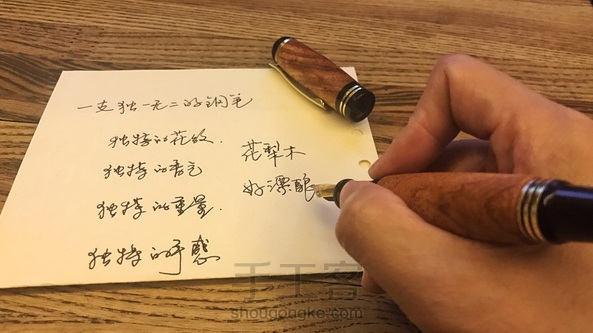 一支独一无二的钢笔
独特的花纹.
独特的香气
独特的重量.
独特的手感
花梨木
好漂亮
手工客
shougongke.com